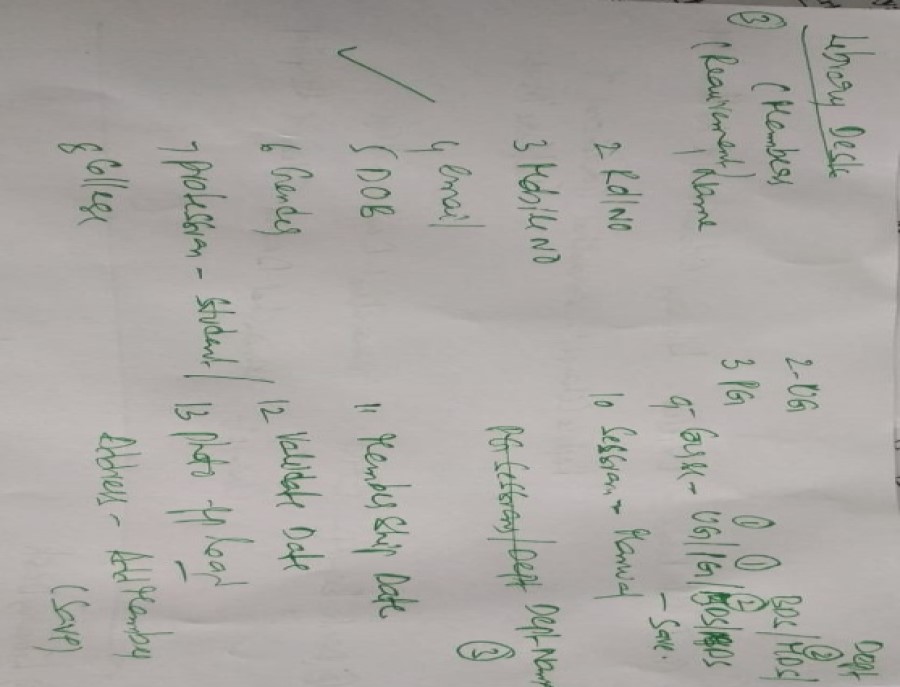 Library Desk
③ (Members
(Requirement)
1 Name
2 Rol NO
3 Mobile NO
4 email
5 DOB
6 Gender
7 profession - Student /
8 College
Dept
2 - UG BDS/MDS/ ②
3 PG ① ①
9 Course - UG/PG/BDS/MDS
10 Session - Manual - Save.
Dept Name ③
11 Membership Date
12 Validate Date
13 photo upload
Address - Add Member
(Save)